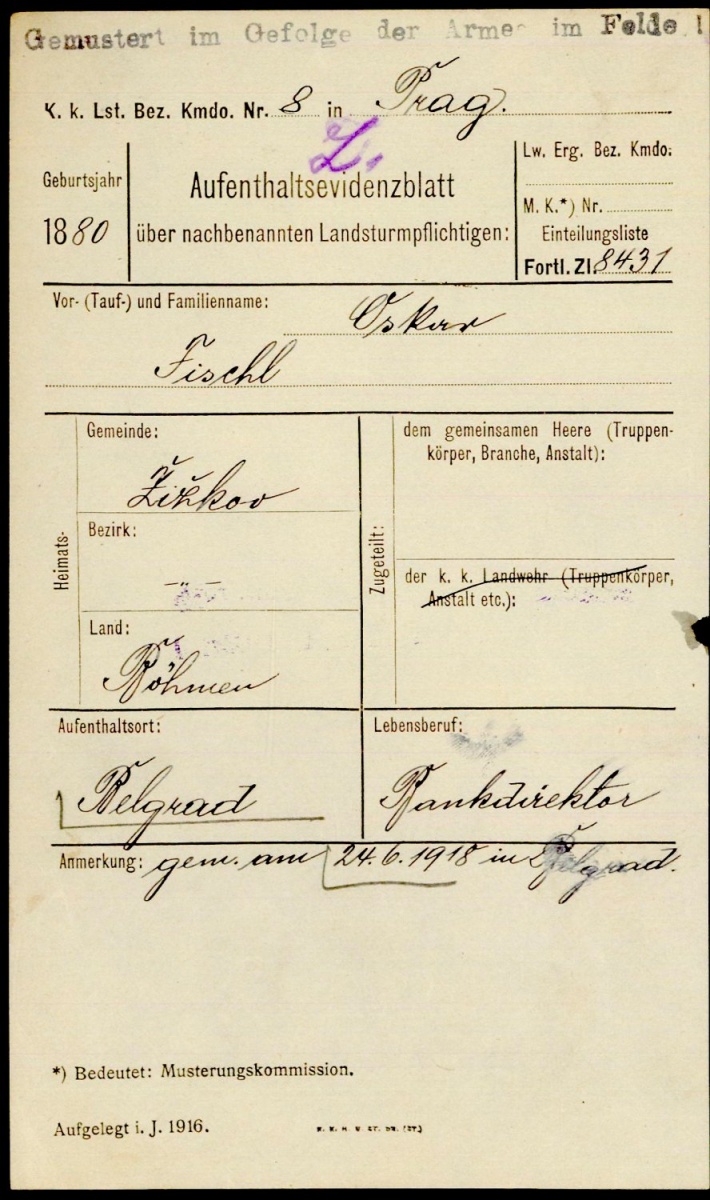 Gemustert im Gefolge der Armee im Felde!
K. k. Lst. Bez. Kmdo. Nr. 8 in Prag.
Z.
Geburtsjahr
1880
Aufenthaltsevidenzblatt
über nachbenannten Landsturmpflichtigen:
Lw. Erg. Bez. Kmdo:
M. K.*) Nr.
Einteilungsliste
Fortl. Zl. 8431
Vor- (Tauf-) und Familienname: Oskar
Fischl
Heimats-
Gemeinde:
Žižkov
Bezirk:
—"—
Land:
Böhmen
Zugeteilt:
dem gemeinsamen Heere (Truppen-
körper, Branche, Anstalt):
der k. k. Landwehr (Truppenkörper,
Anstalt etc.):
Aufenthaltsort:
Belgrad
Lebensberuf:
Bankdirektor
Anmerkung: gem. am 24.6.1918 in Belgrad.
*) Bedeutet: Musterungskommission.
Aufgelegt i. J. 1916.